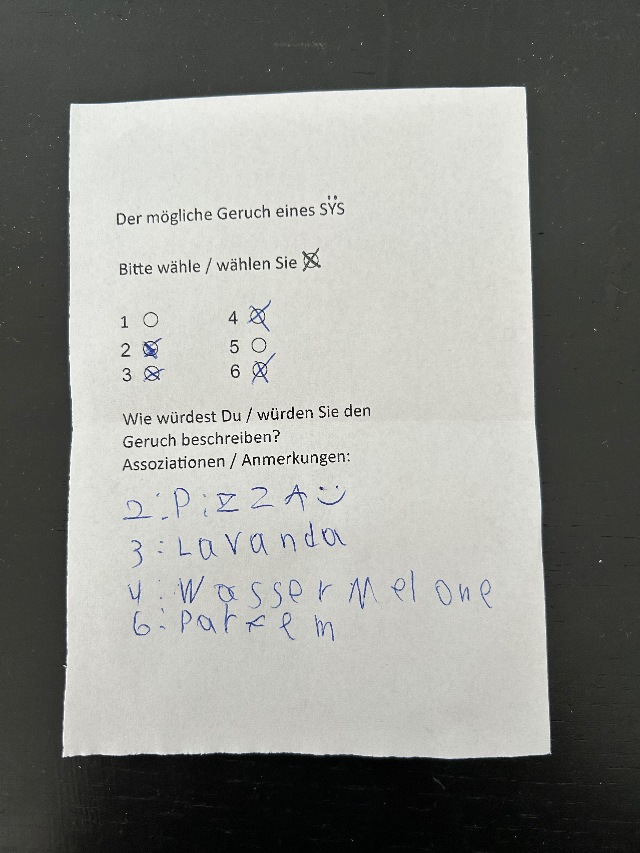 Der mögliche Geruch eines SŸS
Bitte wähle / wählen Sie
1 4
2 5
3 6
Wie würdest Du / würden Sie den
Geruch beschreiben?
Assoziationen / Anmerkungen:
2: PiZZA
3: Lavanda
4: WasserMelone
6: Parfem